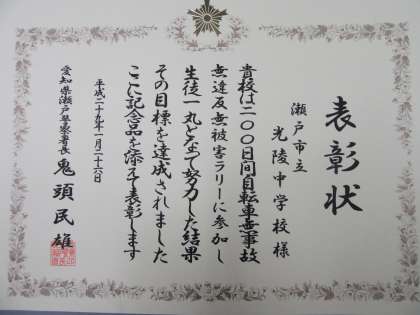 表彰状
瀬戸市立
光陵中学校様
貴校は二〇〇日間自転車無事故
無違反無被害ラリーに参加し
生徒一丸となって努力した結果
その目標を達成されました
ここに記念品を添えて表彰します
平成二十九年一月二十六日
愛知県瀬戸警察署長 鬼頭民雄